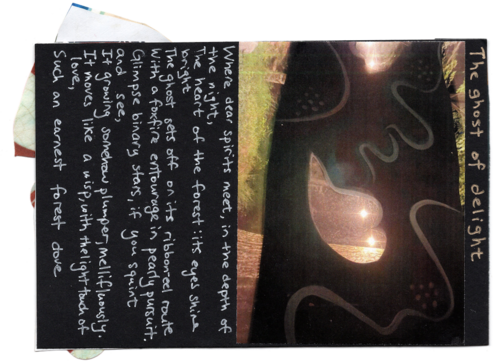 The ghost of delight
Where dear spirits meet, in the depth of
the night,
The heart of the forest: its eyes shine
bright
The ghost sets off on its ribbon-reel route
With a foxfire entourage in pearly pursuit.
Glimpse binary stars, if you squint
and see,
It growing somehow plumper, mellifluously.
It moves like a wisp, with the light touch of
love,
Such an earnest forest dove